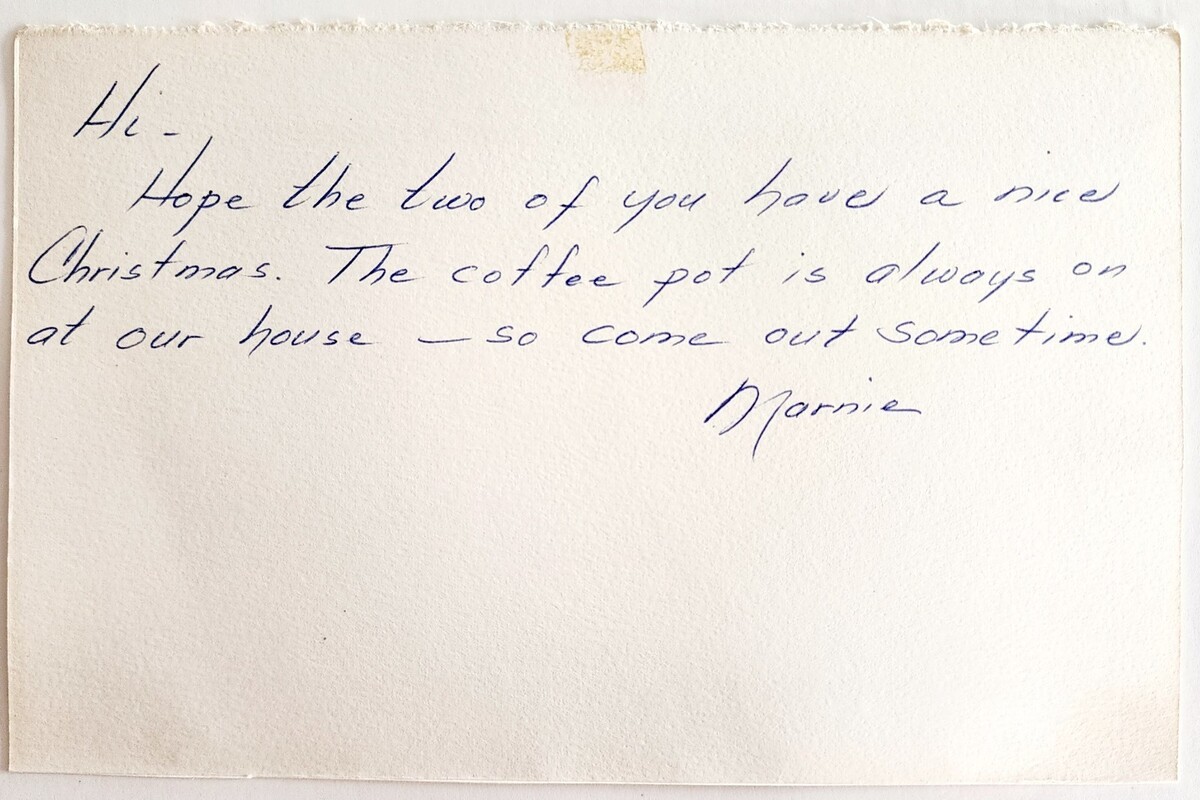 Hi -
Hope the two of you have a nice
Christmas. The coffee pot is always on
at our house — so come out sometime.
Marnie